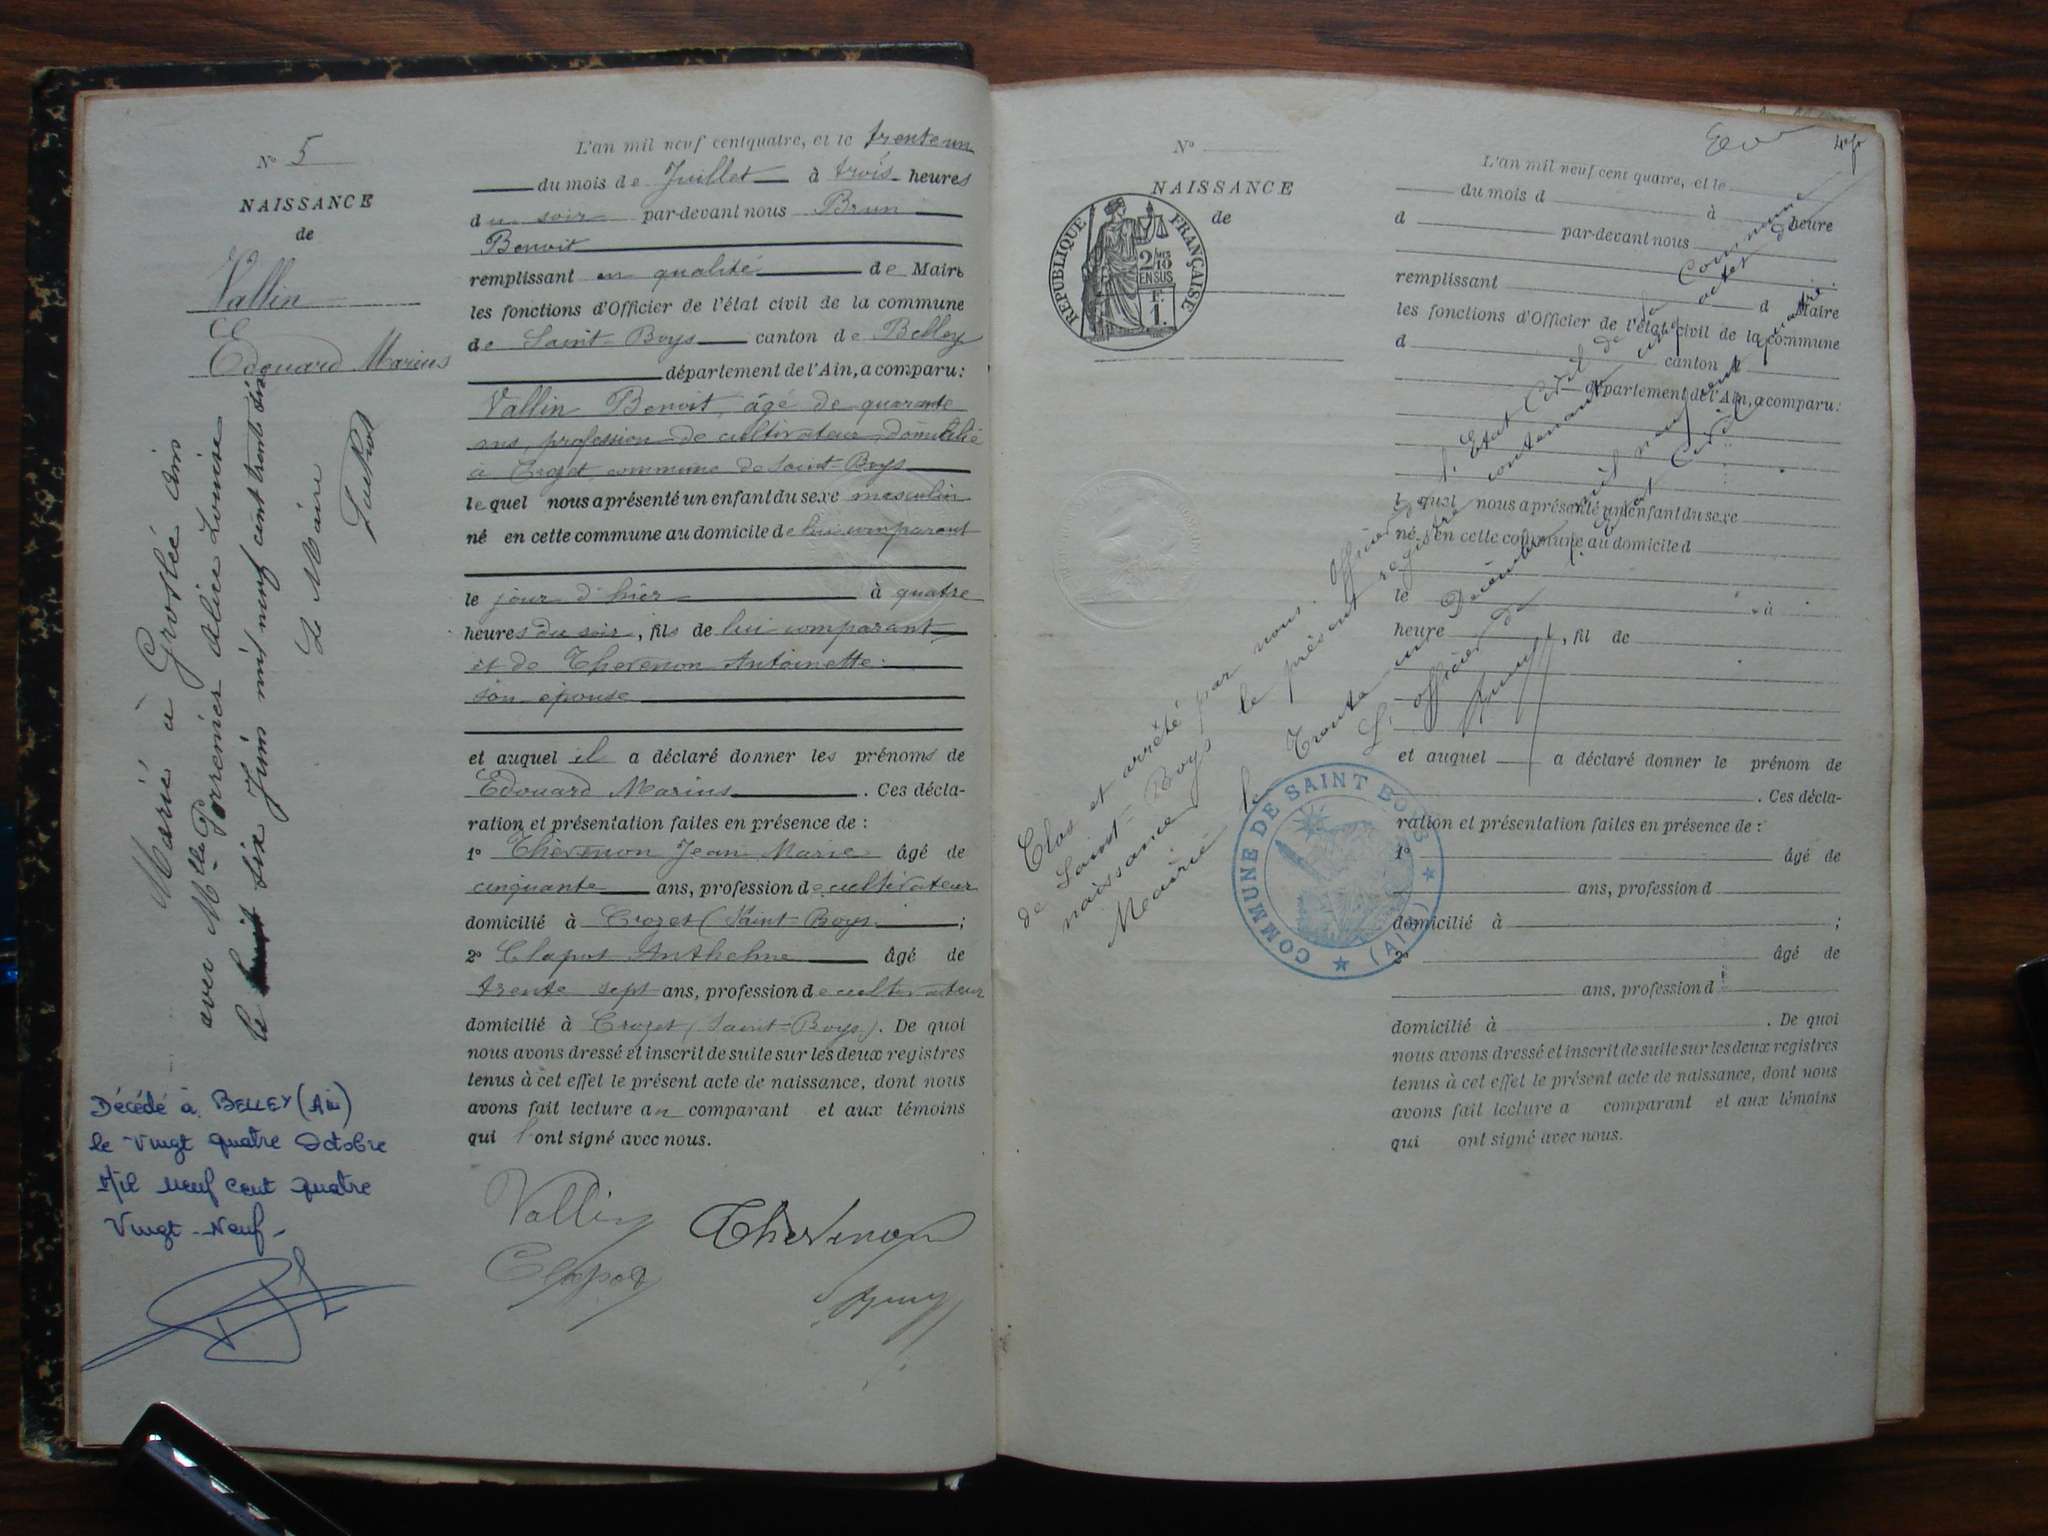 N° 5
NAISSANCE
de
Vallin
Edouard Marius
Marié à Groslée Ain
avec Mlle Perremier Alice Louise
le six Juin mil neuf cent trente
Le Maire
Décédé à BELLEY (Ain)
le Vingt quatre Octobre
Mil neuf cent quatre
Vingt-Neuf-
L'an mil neuf centquatre, et le trente un
du mois de Juillet à trois heures
du soir par-devant nous Brun
Benoit
remplissant en qualité de Maire
les fonctions d'Officier de l'état civil de la commune
de Saint-Boys canton de Belley
département de l'Ain, a comparu:
Vallin Benoit, âgé de quarante
ans, profession de cultivateur domicilié
à Crozet commune de Saint-Boys
lequel nous a présenté un enfant du sexe masculin
né en cette commune au domicile de lui comparant
le jour d'hier à quatre
heures du soir, fils de lui comparant
et de Thevenon Antoinette
son épouse
et auquel il a déclaré donner les prénoms de
Edouard Marius. Ces décla-
ration et présentation faites en présence de :
1° Thévenon Jean Marie âgé de
cinquante ans, profession de cultivateur
domicilié à Crozet (Saint-Boys ;
2° Clapot Anthelme âgé de
trente sept ans, profession de cultivateur
domicilié à Crozet (Saint-Boys). De quoi
nous avons dressé et inscrit de suite sur les deux registres
tenus à cet effet le présent acte de naissance, dont nous
avons fait lecture au comparant et aux témoins
qui l'ont signé avec nous.
Vallin Thevenon
Clapot
N°
NAISSANCE
de
REPUBLIQUE FRANÇAISE
2/10 MES
EN SUS
F.
1.
L'an mil neuf cent quatre, et le
du mois d à heure
d par-devant nous
remplissant d Maire
les fonctions d'Officier de l'état civil de la commune
d canton
département de l'Ain, a comparu:
l quel nous a présenté un enfant du sexe
né en cette commune au domicile d
le à
heure , fil de
et auquel a déclaré donner le prénom de
. Ces décla-
ration et présentation faites en présence de :
1° âgé de
ans, profession d
domicilié à ;
2° âgé de
ans, profession d
domicilié à . De quoi
nous avons dressé et inscrit de suite sur les deux registres
tenus à cet effet le présent acte de naissance, dont nous
avons fait lecture a comparant et aux témoins
qui ont signé avec nous.
Clos et arrêté par nous. Officier de l'Etat Civil de la Commune
de Saint-Boys le présent registre contenant actes de
naissance
Mairie le Trente un Décembre mil neuf cent quatre
L'officier de l'Etat Civil
COMMUNE DE SAINT BOYS
(AIN)